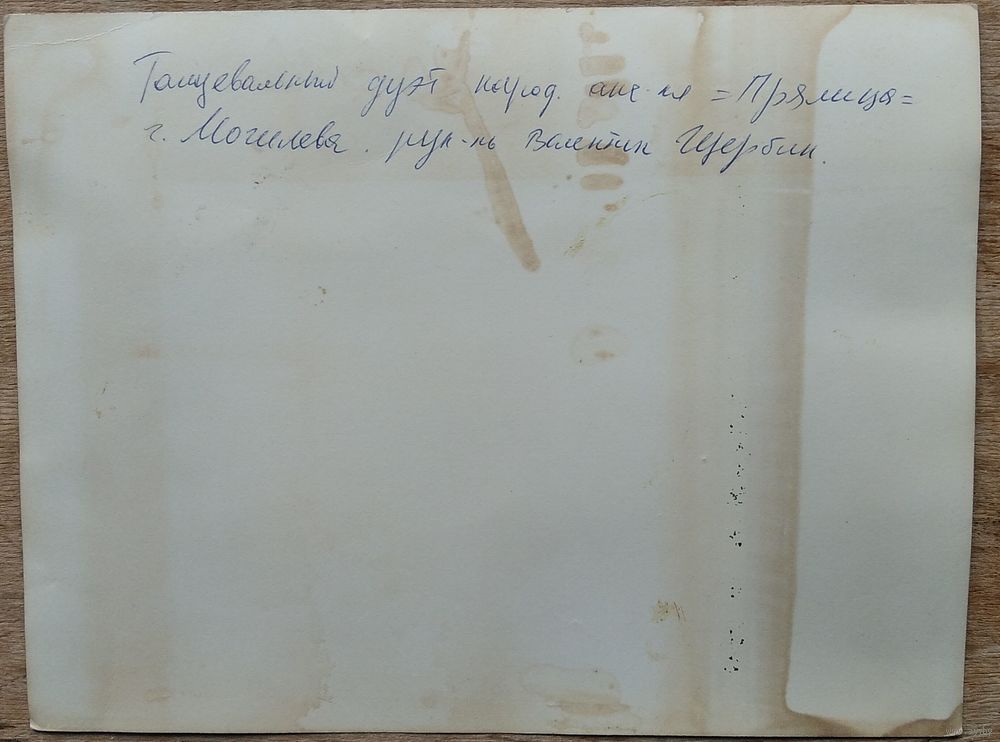 Танцевальный дуэт народ. анс-ля =Прялица=
г. Могилева. рук-ль Валентин Щербин.